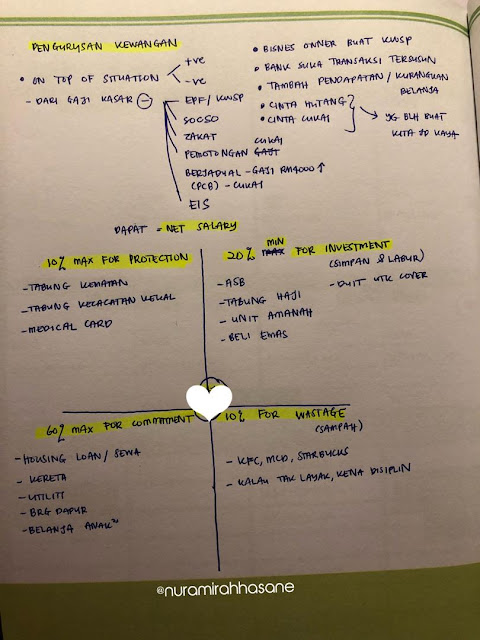 PENGURUSAN KEWANGAN
• ON TOP OF SITUATION
+ve
-ve
- DARI GAJI KASAR
EPF/ KWSP
SOCSO
ZAKAT
CUKAI
PEMOTONGAN GAJI
BERJADUAL - GAJI RM4000 ↑
(PCB) - CUKAI
EIS
• BISNES OWNER BUAT KWSP
• BANK SUKA TRANSAKSI TERSUSUN
• TAMBAH PENDAPATAN / KURANGKAN
BELANJA
• CINTA HUTANG
• CINTA CUKAI
→ YG BLH BUAT
KITA JD KAYA
DAPAT = NET SALARY
10% MAX FOR PROTECTION
- TABUNG KEMATIAN
- TABUNG KECACATAN KEKAL
- MEDICAL CARD
MIN
20% MAX FOR INVESTMENT
(SIMPAN & LABUR)
- ASB
- TABUNG HAJI
- UNIT AMANAH
- BELI EMAS
- DUIT UTK COVER
60% MAX FOR COMMITMENT
- HOUSING LOAN / SEWA
- KERETA
- UTILITI
- BRG DAPUR
- BELANJA ANAK²
10% FOR WASTAGE
(SAMPAH)
- KFC, MCD, STARBUCKS
- KALAU TAK LAYAK, KENA DISIPLIN
@nuramirahhasane